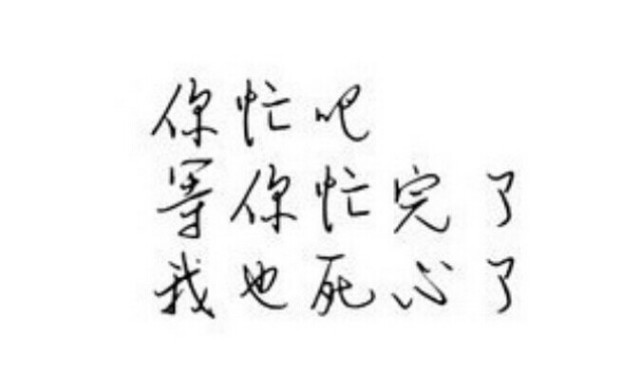 你忙吧
等你忙完了
我也死心了